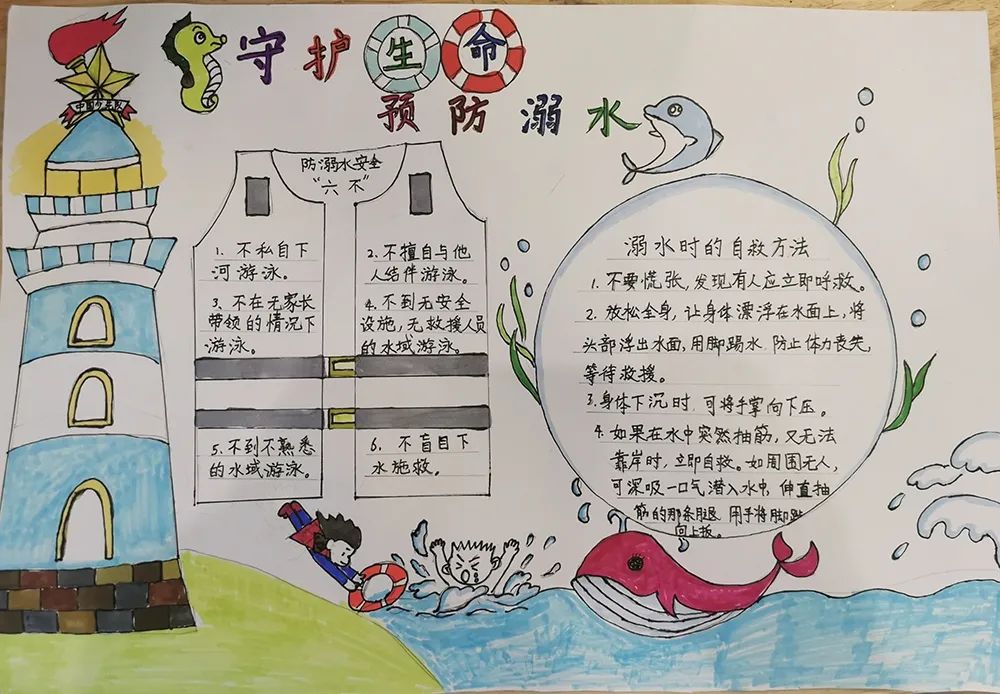 守护生命
预防溺水
中国少年队
防溺水安全
“六不”
1. 不私自下
河游泳。
2. 不擅自与他
人结伴游泳。
3. 不在无家长
带领的情况下
游泳。
4. 不到无安全
设施，无救援人员
的水域游泳。
5. 不到不熟悉
的水域游泳。
6. 不盲目下
水施救。
溺水时的自救方法
1. 不要慌张，发现有人应立即呼救。
2. 放松全身，让身体漂浮在水面上，将
头部浮出水面，用脚踢水，防止体力丧失，
等待救援。
3. 身体下沉时，可将手掌向下压。
4. 如果在水中突然抽筋，又无法
靠岸时，立即自救。如周围无人，
可深吸一口气潜入水中，伸直抽
筋的那条腿，用手将脚趾
向上扳。